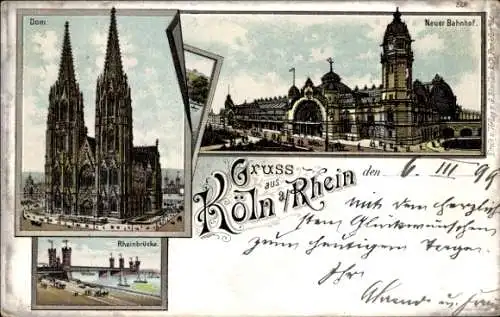 Dom.
Neuer Bahnhof.
Gruss
aus
Köln a/Rhein
den 6. III 99
Rheinbrücke.
Mit den herzlich
sten Glückwünschen
zum heutigen Tage.
Ihr
u. Frau